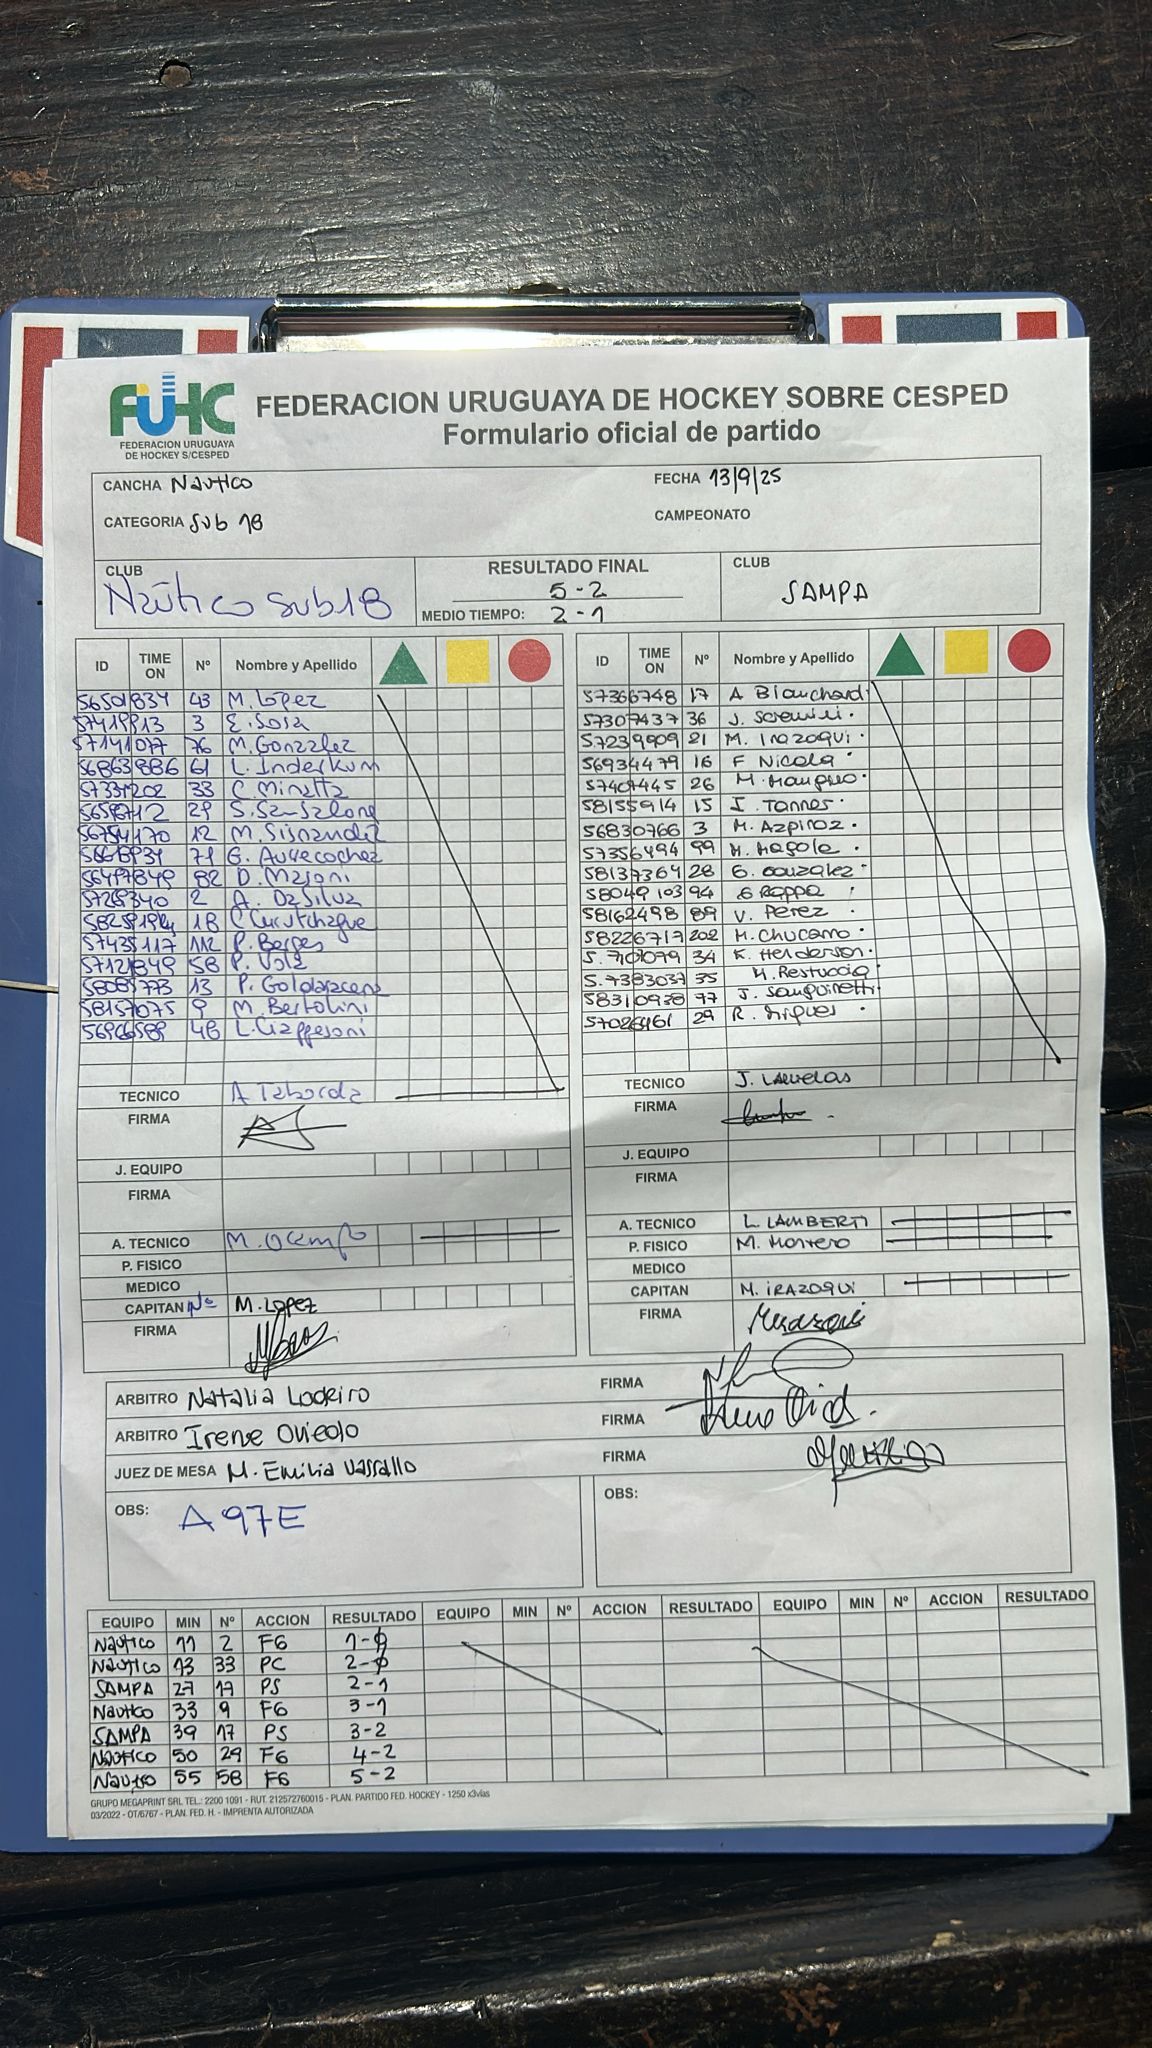 FUHC
FEDERACION URUGUAYA
DE HOCKEY S/CESPED
FEDERACION URUGUAYA DE HOCKEY SOBRE CESPED
Formulario oficial de partido
CANCHA Nautico
FECHA 13/9/25
CATEGORIA Sub 18
CAMPEONATO
CLUB Naútico sub18
RESULTADO FINAL
5-2
MEDIO TIEMPO: 2-1
CLUB SAMPA
ID TIME ON Nº Nombre y Apellido
56501834 43 M. López
3 E. Sosa
57141077 76 M. Gonzalez
56863886 61 L. Inderkum
57331202 33 C. Minetta
29
56754170 12
71
D. Masoni
2 A. DaSilva
18
57435117 112 P. Berges
57121849 58 P. Volz
58085773 13
58157075 9 M. Bertolini
48
TECNICO A Taborda
FIRMA
J. EQUIPO
FIRMA
A. TECNICO M. Ocampo
P. FISICO
MEDICO
CAPITAN Nº M. Lopez
FIRMA
ID TIME ON Nº Nombre y Apellido
57366748 17 A Blanchard
57307437 36 J.
57239909 21 M. Irazoqui
56934479 16 F Nicola
57401445 26 M.
58155914 15 I. Tanner
56830766 3 M. Azpiroz
57356494 99 M.
58137364 28 G. Gonzalez
58049103 94 G Rappa
58162498 89 V. Perez
58226717 202 M. Chucarro
34 K. Henderson
5.7383037 35 M. Restuccia
58310928 77 J. Sanguinetti
57026461 29 R.
TECNICO J.
FIRMA
J. EQUIPO
FIRMA
A. TECNICO L. LAMBERTI
P. FISICO M. Montero
MEDICO
CAPITAN M. IRAZOQUI
FIRMA
ARBITRO Natalia Lodeiro
FIRMA
ARBITRO Irene Oviedo
FIRMA
JUEZ DE MESA M. Emilia Vassallo
FIRMA
OBS: A97E
OBS:
EQUIPO MIN Nº ACCION RESULTADO EQUIPO MIN Nº ACCION RESULTADO EQUIPO MIN Nº ACCION RESULTADO
Nautico 11 2 FG 1-0
Nautico 13 33 PC 2-0
SAMPA 27 17 PS 2-1
Nautico 33 9 FG 3-1
SAMPA 39 17 PS 3-2
Nautico 50 29 FG 4-2
Nautico 55 58 FG 5-2
GRUPO MEGAPRINT SRL TEL.: 2200 1091 - RUT. 212572760015 - PLAN. PARTIDO FED. HOCKEY - 1250 x3vias
03/2022 - OT/6767 - PLAN. FED. H. - IMPRENTA AUTORIZADA